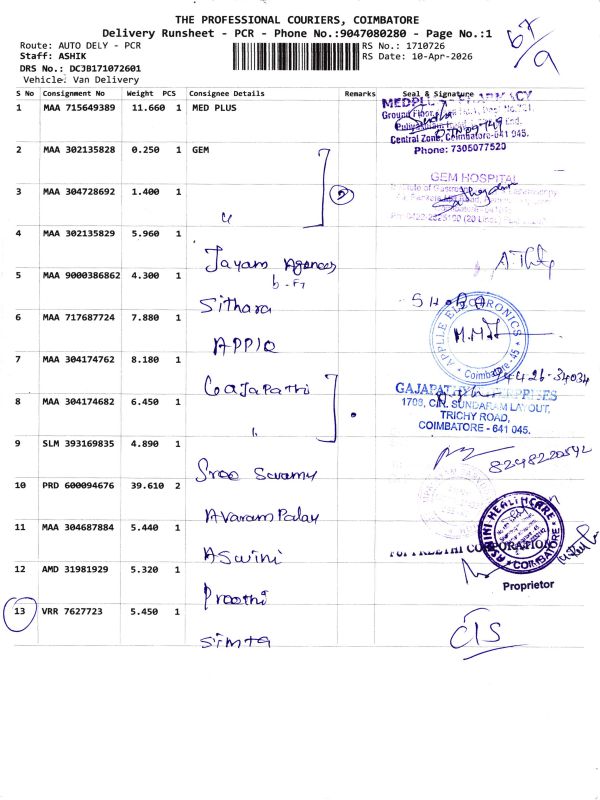 THE PROFESSIONAL COURIERS, COIMBATORE
Delivery Runsheet - PCR - Phone No.:9047080280 - Page No.:1
67/9
Route: AUTO DELY - PCR
RS No.: 1710726
Staff: ASHIK
RS Date: 10-Apr-2026
DRS No.: DC3B171072601
Vehicle: Van Delivery
S No Consignment No Weight PCS Consignee Details Remarks Seal & Signature
1 MAA 715649389 11.660 1 MED PLUS
Central Zone, Coimbatore-641 045.
Phone: 7305077520
2 MAA 302135828 0.250 1 GEM
GEM HOSPITAL
3 MAA 304728692 1.400 1
4 MAA 302135829 5.960 1
Jayam Agences
5 MAA 9000386862 4.300 1
Sithara
6 MAA 717687724 7.880 1
APPLE
APPLLE ELECTRONICS
Coimbatore - 45
7 MAA 304174762 8.180 1
Gajapathi
94426-34034
8 MAA 304174682 6.450 1
1706, C.N. SUNDARAM LAYOUT,
TRICHY ROAD,
COIMBATORE - 641 045.
9 SLM 393169835 4.890 1
Sree Swamy
8248220542
10 PRD 600094676 39.610 2
Avaram Palay
11 MAA 304687884 5.440 1
Aswini
ASWINI HEALTHCARE
COIMBATORE
For PREETHI CORPORATION
12 AMD 31981929 5.320 1
Preethi
Proprietor
13 VRR 7627723 5.450 1
Simta
CIS